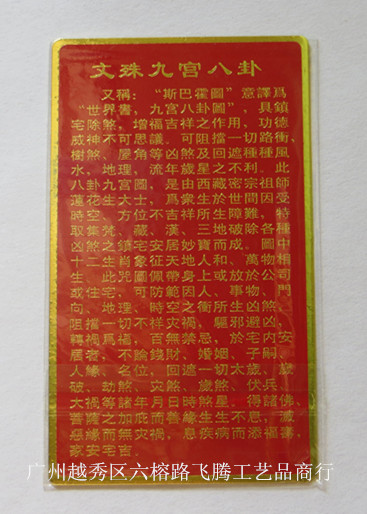 文殊九宫八卦
又稱：“斯巴霍圖”意譯爲
“世界書、九宫八卦圖”，具鎮
宅除煞，增福吉祥之作用，功德
威神不可思議。可阻擋一切路衝，
樹煞、屋角等凶煞及回遮種種風
水、地理，流年歲星之不利。此
八卦九宫圖，是由西藏密宗祖師
蓮花生大士，爲衆生於世間因受
時空、方位不吉祥所生障難，特
取集梵、藏、漢、三地破除各種
凶煞之鎮宅安居妙寶而成。圖中
十二生肖象征天地人和、萬物相
生，此咒圖佩帶身上或放於公司
或住宅，可防範因人、事物、門
向、地理，時空之衝所生凶煞，
阻擋一切不祥灾禍，驅邪避凶，
轉禍爲福，百無禁忌，於宅内安
居者，不論錢財、婚姻、子嗣、
人緣、名位，回遮一切太歲、歲
破、劫煞、灾煞、歲煞、伏兵、
大禍等諸年月日時煞星。得諸佛、
菩薩之加庇而善緣生生不息，滅
惡緣而無灾禍，息疾病而添福壽，
家安宅吉。
广州越秀区六榕路飞腾工艺品商行